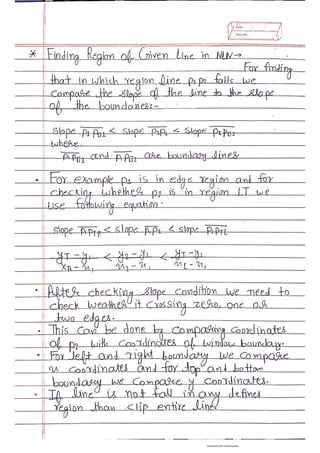 * Finding Region of Given Line in NLN→
For finding
that in which region line p1p2 falls we
compare the slope of the line to the slope
of the boundaries:-
slope P1PB1 < slope P1P2 < slope P1PB2
where,
P1PB1 and P1PB2 are boundary lines
• For example p1 is in edge region and for
checking whether p2 is in region LT we
use following equation:
slope P1PTR < slope P1P2 < slope P1PTL
yT-y1 < y2-y1 < yT-y1
xR-x1 x2-x1 xL-x1
• After checking slope condition we need to
check weather it crossing zero, one or
two edges.
• This can be done by comparing coordinates
of p2 with coordinates of window boundary.
• For left and right boundary we compare
x coordinates and for top and bottom
boundary we compare y coordinates.
• If line is not fall in any defined
region than clip entire line